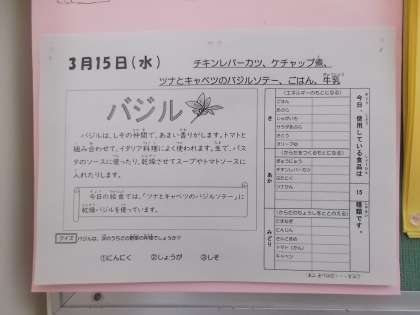 3月15日(水)
チキンレバーカツ、ケチャップ煮、
ツナとキャベツのバジルソテー、ごはん、牛乳
バジル
バジルは、しその仲間で、あまい香りがします。トマトと
組み合わせて、イタリア料理によく使われます。生で、パス
タのソースに使ったり、乾燥させてスープやトマトソースに
入れたりします。
今日の給食では、「ツナとキャベツのバジルソテー」に
乾燥バジルを使っています。
クイズ バジルは、次のうちどの野菜の仲間でしょうか?
①にんにく ②しょうが ③しそ
き
(エネルギーのもとになる)
ごはん
あぶら
じゃがいも
サラダあぶら
さとう
オリーブゆ
あか
(からだをつくるもとになる)
ぎゅうにゅう
チキンレバーカツ
ツナかん
みどり
(からだのちょうしをととのえる)
たまねぎ
にんじん
さんどまめ
トマト(かん)
キャベツ
今日、使用している食品は
15
種類です。